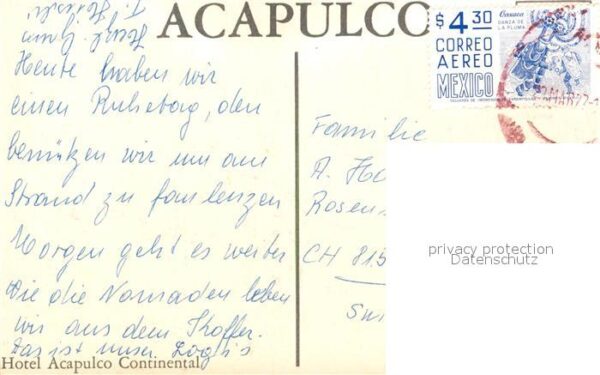 ACAPULCO
$4.30
Oaxaca
DANZA DE
LA PLUMA
CORREO
AEREO
MEXICO
Heute haben wir
einen Ruhetag, den
benützen wir um am
Strand zu faulenzen
Morgen geht es weiter
Wie die Nomaden leben
wir aus dem Koffer.
Das ist unser Logis
Hotel Acapulco Continental
Familie
A. Ho
Rosen
CH 815
privacy protection
Datenschutz